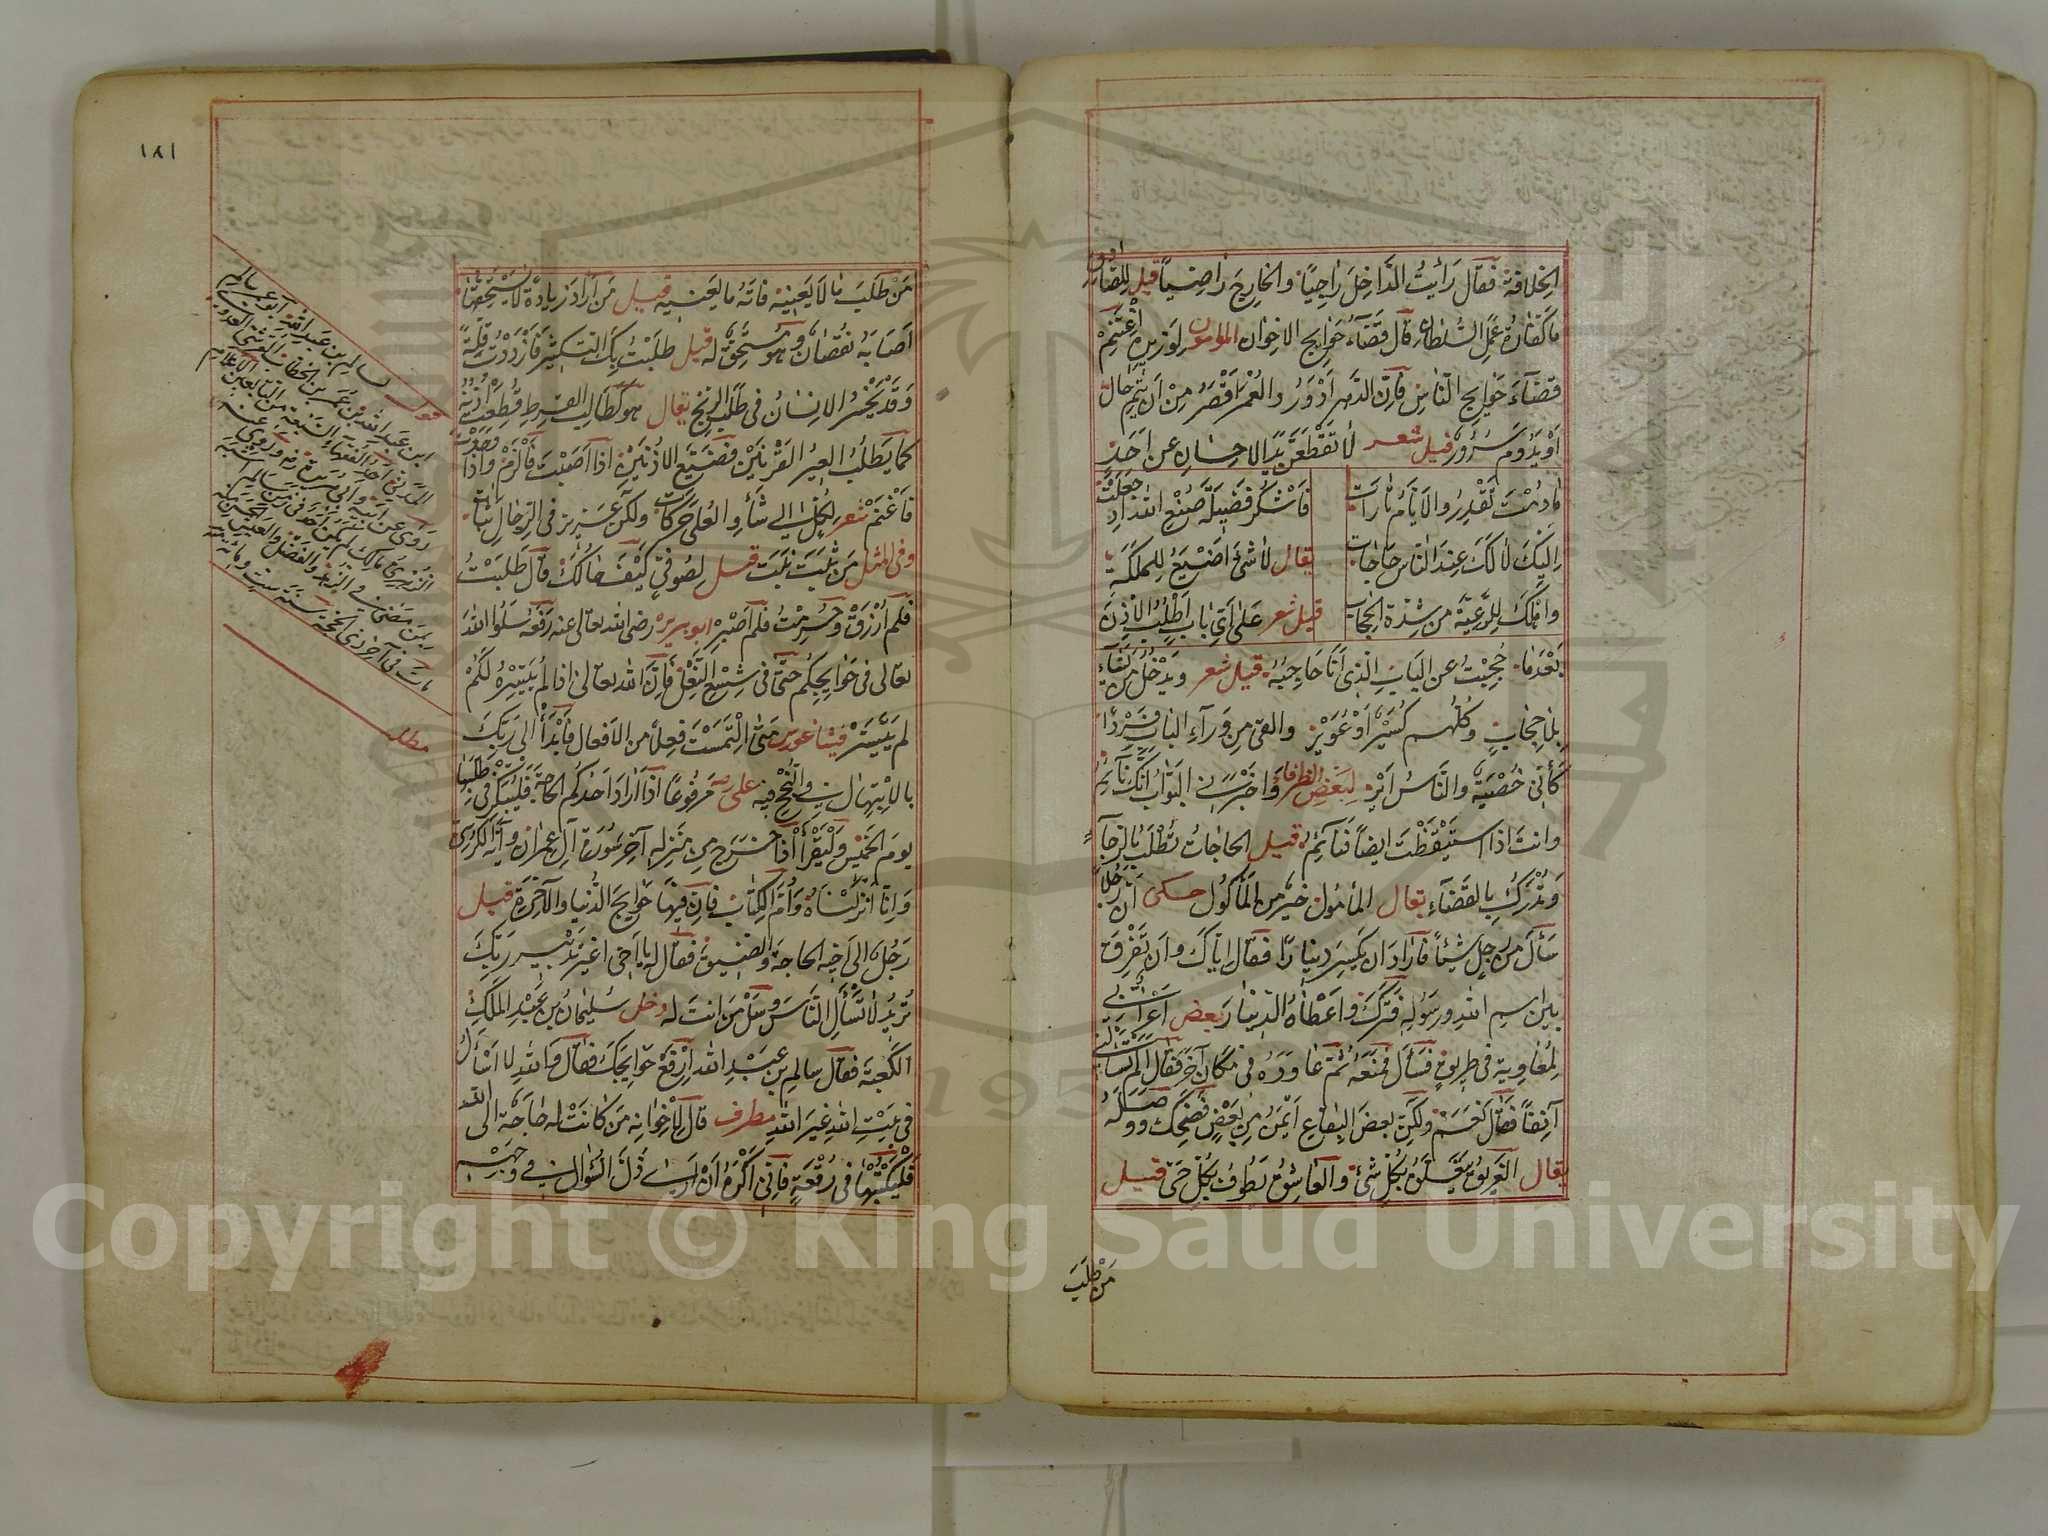 الخلافة فقال رأيت الداخل راجيا والخارج راضيا قيل للصادق
ما كفارة عمل السلطان قال قضاء حوايج الاخوان المأمون لوزيره اغتنم
قضاء حوايج الناس فان الدهر ادور والعمر اقصر من ان يتم حال
او يدوم سرور قيل شعر لا تقطعن يد الاحسان عن احد
ما دمت تقدر والايام تارات فاشكر فضيلة صنع الله اذ جعلت
اليك لا لك عند الناس حاجات يقال لا شئ اضيع للمملكة
واهلك للرعية من شدة الحجاب قيل شعر على اي باب اطلب الاذن
بعد ما حجبت عن الباب الذي انا حاجبه قيل شعر ويدخل من يشاء
بلا حجاب وكلهم كسير او عوير والقى من وراء الباب فردا
كأني خصية والناس اير لبعض الظرفاء واخبرني البواب انك نائم
وانت اذا استيقظت ايضا فنائم قيل الحاجات تطلب بالرجاء
وتدرك بالقضاء يقال المأمول خير من المأكول حكى ان رجلا
سأل من رجل شيئا فاراد ان يكسر دينارا فقال اياك وان تفرق
بين اسم الله ورسوله فتركه واعطاه الدينار بعض اعرابي
لمعاوية في طريق فسأل فمنعه ثم عاوده في مكان آخر فقال الم تسألني
آنفا فقال نعم ولكن بعض البقاع ايمن من بعض فضحك ووصله
يقال الغريق يتعلق بكل شئ والعاشق يطوف بكل حي قيل
من طلب
١٨١
من طلب ما لا يعنيه فاته ما يعنيه قيل من اراد زيادة لا يستحقها
اصابه نقصان وهو مستحق له قيل طلبت بك التكثير فازددت قلة
وقد يخسر الانسان في طلب الربح يقال هو كطالب القرط قطعت اذنه
كما يطلب العير القرنين فضيع الاذنين اذا اصبت فالزم واذا وجدت
فاغنم شعر لكل الى شأو العلى حركات ولكن عزيز في الرجال ثبات
وفي المثل من ثبت نبت قيل لصوفي كيف حالك قال طلبت
فلم ارزق وحرمت فلم اصبر ابو هريرة رضى الله تعالى عنه رفعه سلوا الله
تعالى في حوايجكم حتى في شسع النعل فان الله تعالى اذا لم ييسره لكم
لم يتيسر فيثاغورس متى التمست فعلا من الافعال فابدأ الى ربك
بالابتهال في النجح فيه على رضه مرفوعا اذا اراد احدكم الحاجة فليبكر في طلبها
يوم الخميس وليقرأ اذا خرج من منزله آخر سورة آل عمران وآية الكرسي
وانا انزلناه وام الكتاب فان فيها حوايج الدنيا والآخرة قيل
رجل الى اخيه الحاجة والضيق فقال له يا اخي اغير تدبير ربك
تريد لا تسأل الناس وسل من انت له دخل سليمان بن عبد الملك
الكعبة فقال سالم بن عبد الله ارفع حوايجك فقال والله لا اسأل
في بيت الله غير الله مطرف قال لاخوانه من كانت له حاجة الى الله
فليكتبها في رقعة فاني اكره ان ارى ذل السؤال في وجهه
قوله سالم بن عبد الله ابو عمر سالم
ابن عبد الله بن عمر بن الخطاب القرشي العدوي
المدني احد الفقهاء السبعة من التابعين الاعلام
روى عن ابيه وابي هريرة وروى عنه
الزهري قال مالك لم يكن احد في زمن سالم اشبه
بمن مضى في الزهد والفضل والعيش بالخشن منه
مات في آخر ذي الحجة سنة ست ومائة
مطلب